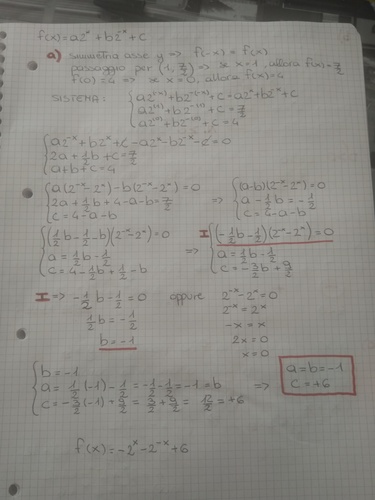 f(x) = a2^x + b2^-x + c
a) simmetria asse y => f(-x) = f(x)
passaggio per (1, 7/2) => se x=1, allora f(x) = 7/2
f(0) = 4 => se x=0, allora f(x) = 4
SISTEMA: { a2^(-x) + b2^-(-x) + c = a2^x + b2^-x + c
a2^(1) + b2^-(1) + c = 7/2
a2^(0) + b2^-(0) + c = 4
{ a2^-x + b2^x + c - a2^x - b2^-x - c = 0
2a + 1/2 b + c = 7/2
a + b + c = 4
{ a(2^-x - 2^x) - b(2^-x - 2^x) = 0 => { (a-b)(2^-x - 2^x) = 0
2a + 1/2 b + 4 - a - b = 7/2 a - 1/2 b = -1/2
c = 4 - a - b c = 4 - a - b
{ (1/2 b - 1/2 - b)(2^-x - 2^x) = 0 => I { (-1/2 b - 1/2)(2^-x - 2^x) = 0
a = 1/2 b - 1/2 a = 1/2 b - 1/2
c = 4 - 1/2 b + 1/2 - b c = -3/2 b + 9/2
I => -1/2 b - 1/2 = 0 oppure 2^-x - 2^x = 0
1/2 b = -1/2 2^-x = 2^x
b = -1 -x = x
2x = 0
x = 0
{ b = -1
a = 1/2 (-1) - 1/2 = -1/2 - 1/2 = -1 = b => a = b = -1
c = -3/2 (-1) + 9/2 = 3/2 + 9/2 = 12/2 = +6 c = +6
f(x) = -2^x - 2^-x + 6